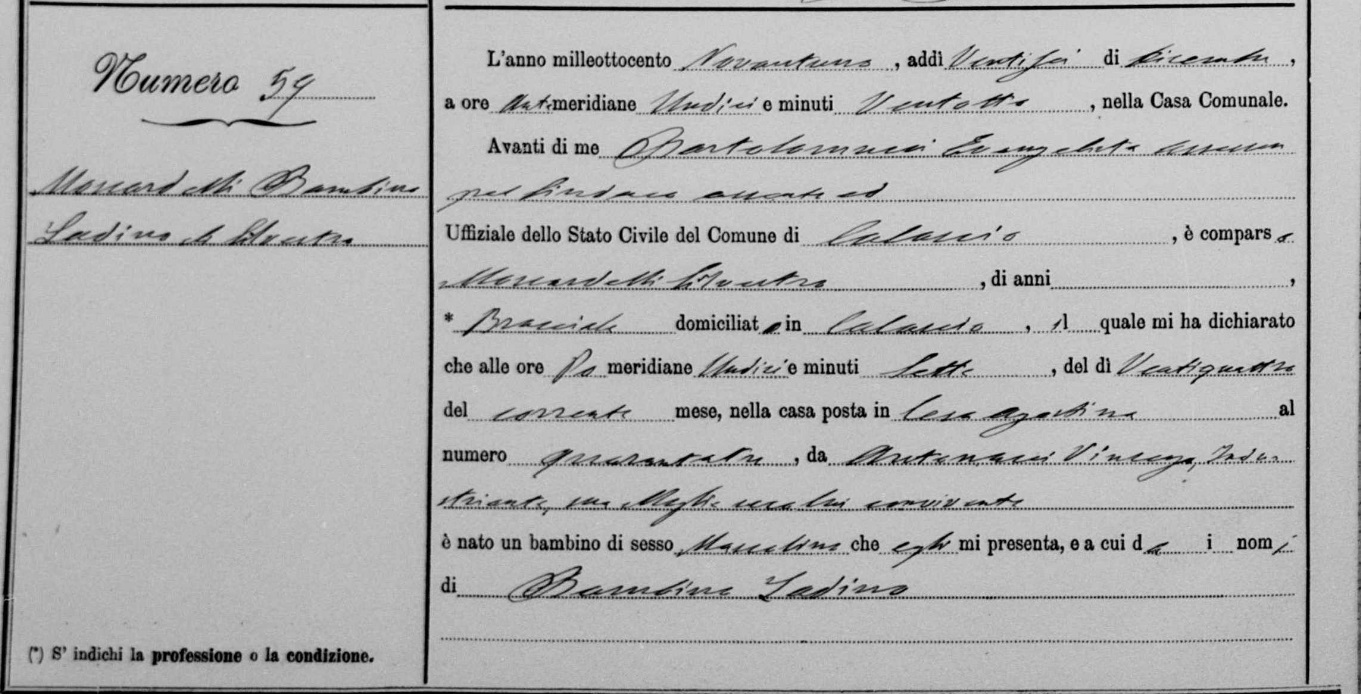 Numero 59
Moscardelli Bambino
Ladino di Silvestro
(*) S' indichi la professione o la condizione.
L'anno milleottocento Novantuno, addì Ventisei di Dicembre,
a ore Antimeridiane Undici e minuti Ventotto, nella Casa Comunale.
Avanti di me Bartolomucci Evangelista assessore
pel Sindaco assente ed
Uffiziale dello Stato Civile del Comune di Calascio, è comparso
Moscardelli Silvestro, di anni ,
* Bracciale domiciliato in Calascio, il quale mi ha dichiarato
che alle ore Po meridiane Undici e minuti Sette, del dì Ventiquattro
del corrente mese, nella casa posta in al
numero quarantatre, da Antonacci Vincenza, Indu-
striante, sua Moglie seco lui convivente
è nato un bambino di sesso Mascolino che egli mi presenta, e a cui dà i nomi
di Bambino Ladino